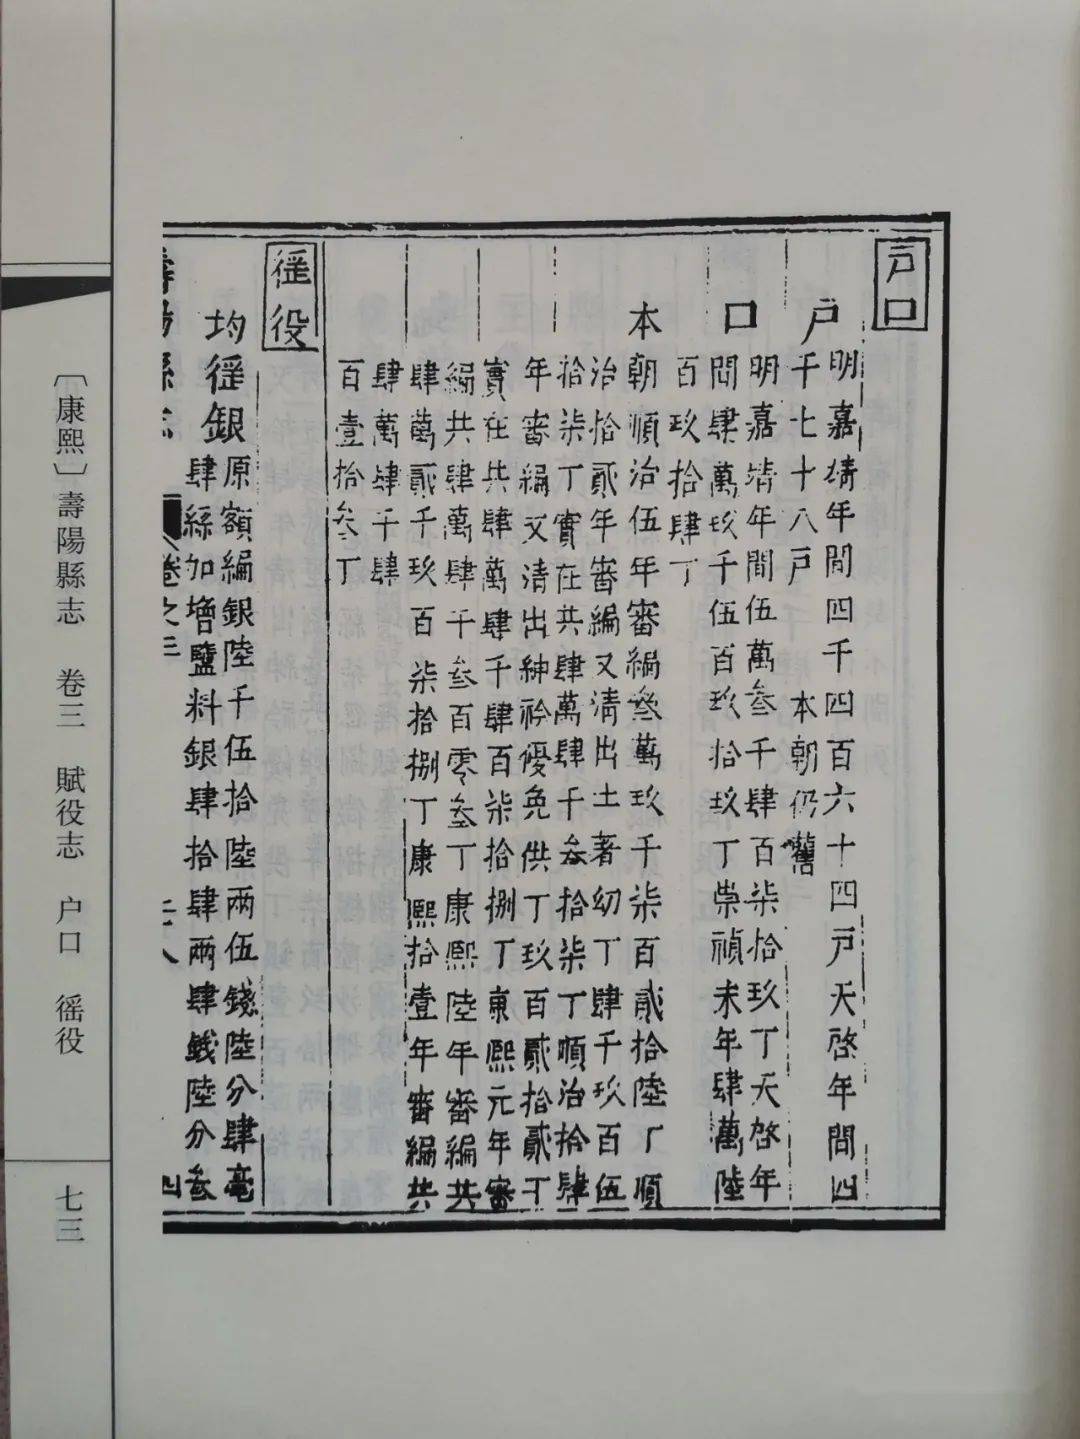 户口
户
明嘉靖年間四千四百六十四戸天啓年間四
千七十八戸 本朝仍舊
口
明嘉靖年間伍萬叁千肆百柒拾玖丁天啓年
間肆萬玖千伍百玖拾玖丁崇禎末年肆萬陸
百玖拾肆丁
本朝順治伍年審編叁萬玖千柒百貳拾陸丁順
治拾貳年審編又清出土著幼丁肆千玖百伍
拾柒丁實在共肆萬肆千叁拾柒丁順治拾肆
年審編又清出紳衿優免供丁玖百貳拾貳丁
實在共肆萬肆千肆百柒拾捌丁康熙元年審
編共肆萬肆千叁百零叁丁康熙陸年審編共
肆萬貳千玖百柒拾捌丁康熙拾壹年審編共
肆萬肆千肆
百壹拾叁丁
徭役
均徭銀
原額編銀陸千伍拾陸兩伍錢陸分肆毫
肆絲加增鹽料銀肆拾肆兩肆錢陸分叁
壽陽縣志 卷之三 四
〔康熙〕壽陽縣志 卷三 賦役志 户口 徭役
七三